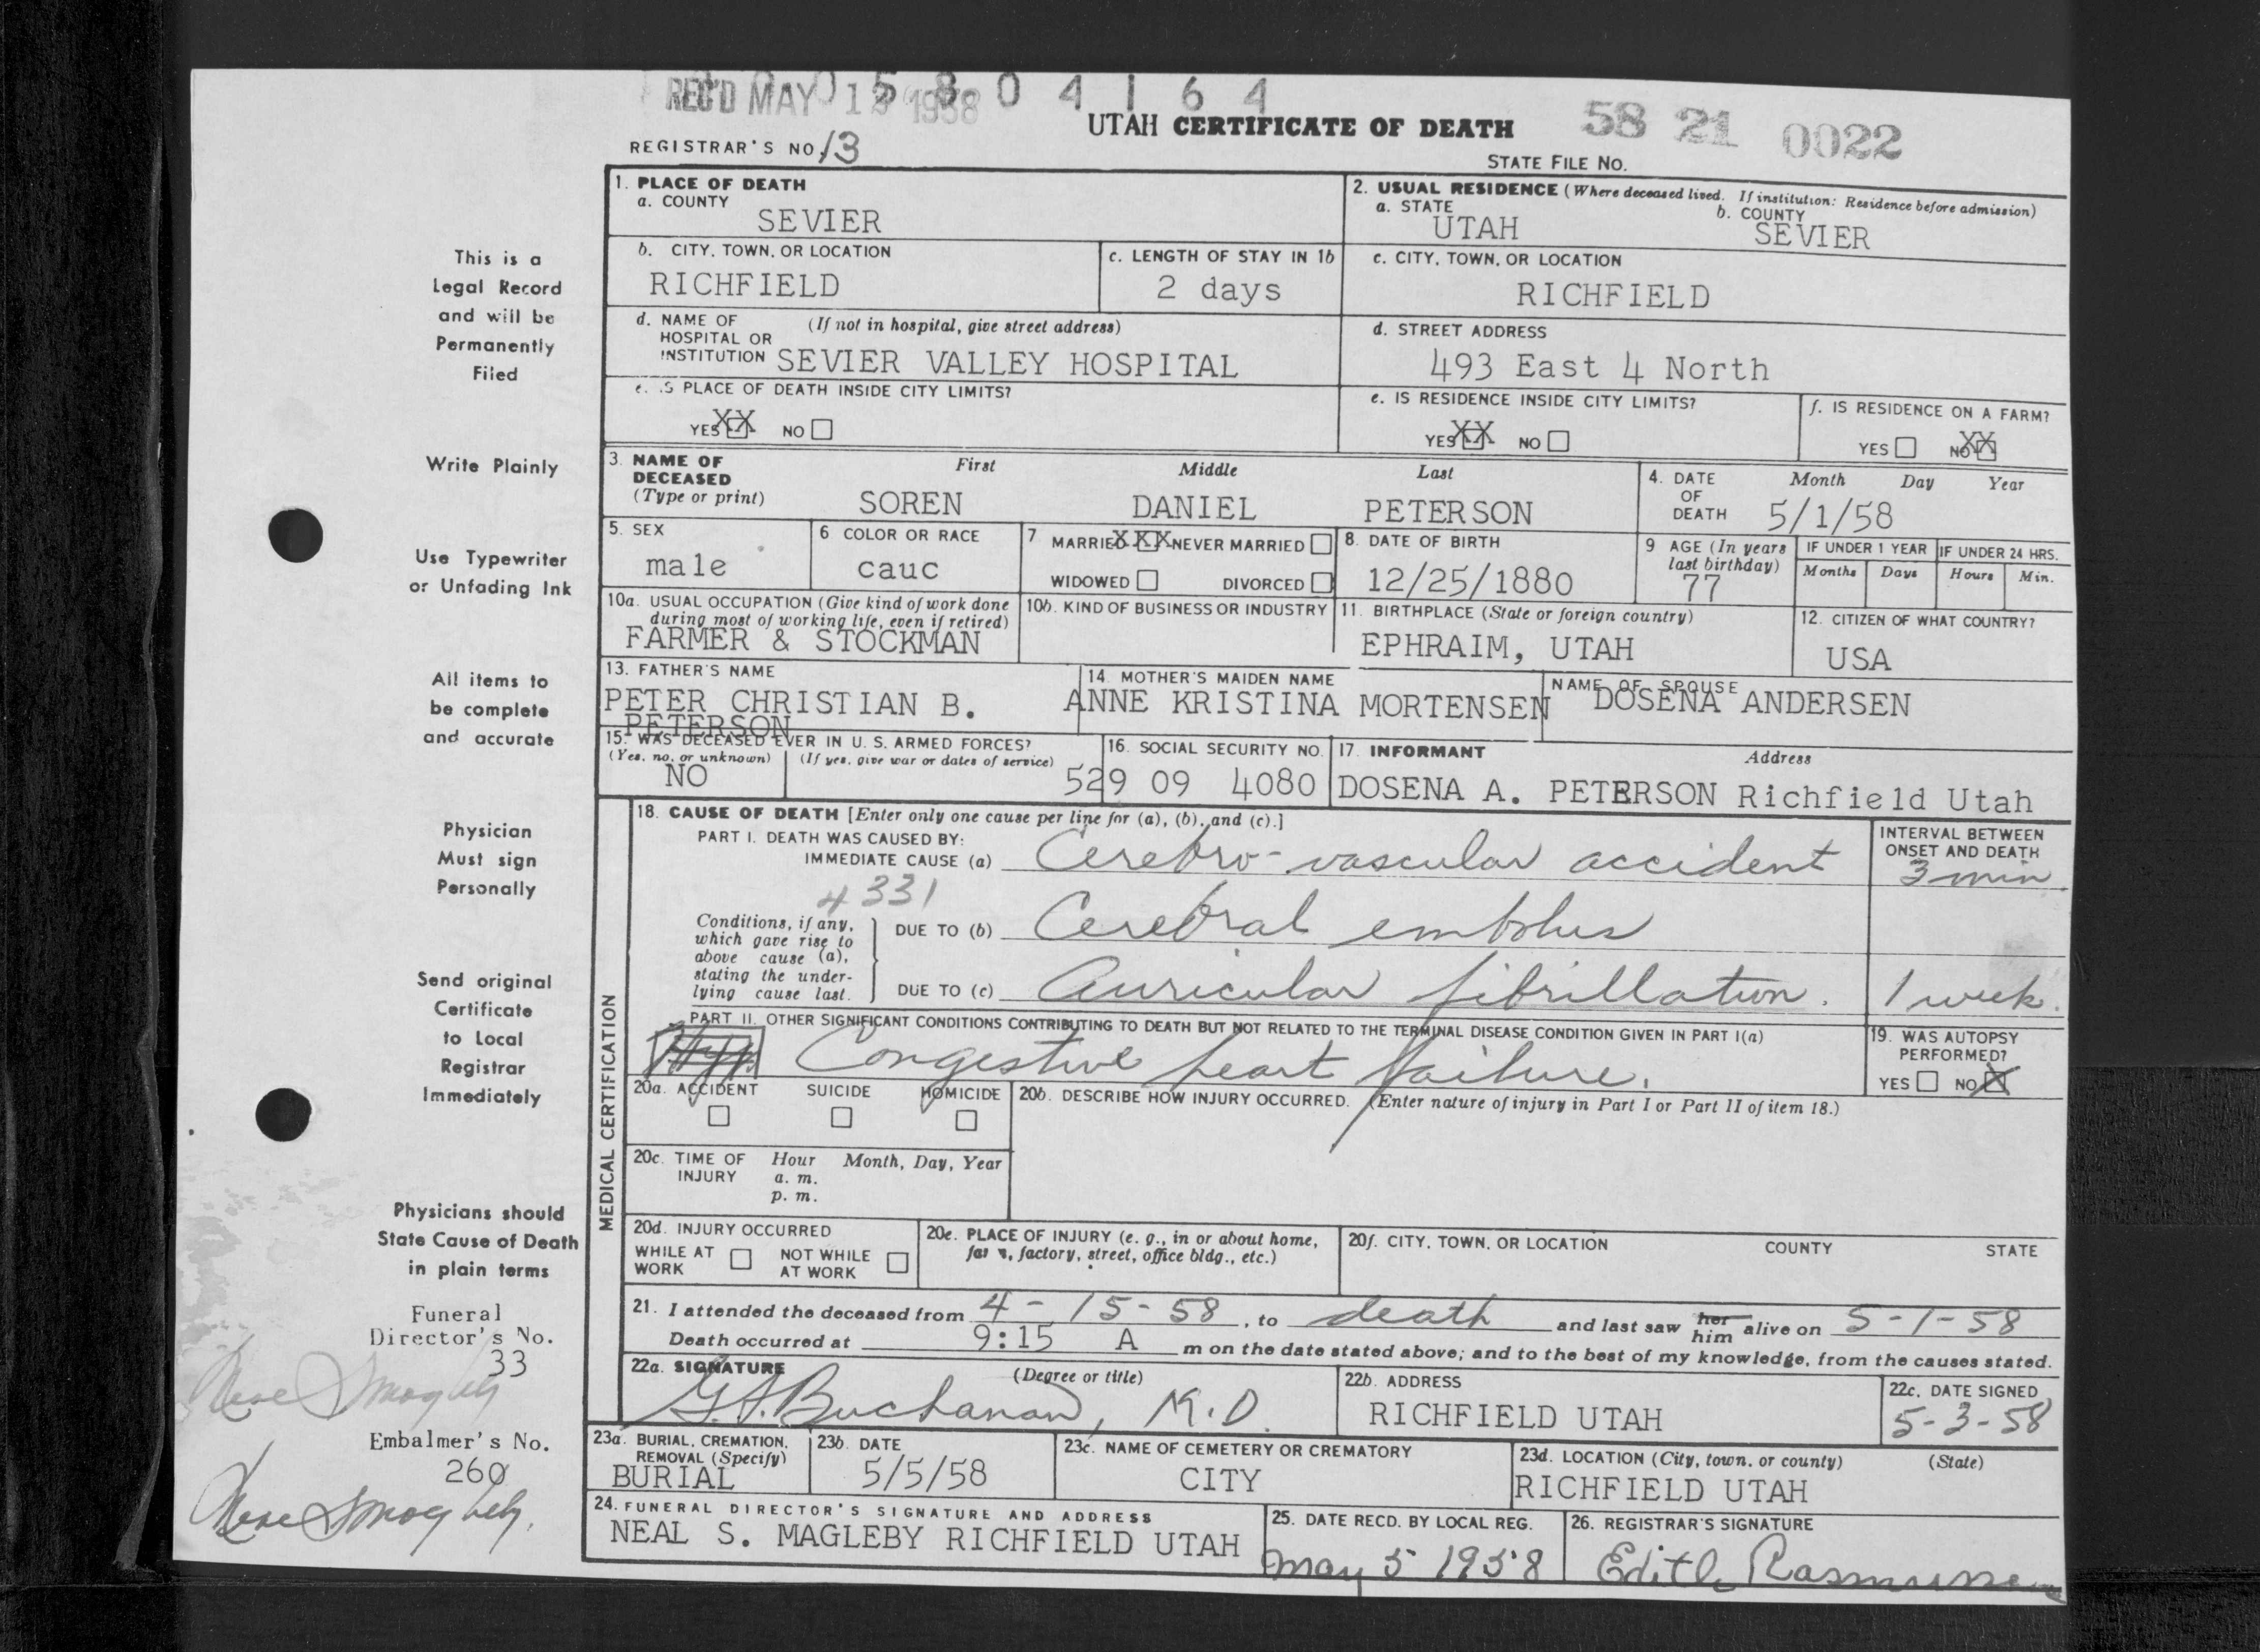 REC'D MAY 1 1958
5 8 0 4 1 6 4
UTAH CERTIFICATE OF DEATH
58 21 0022
REGISTRAR'S NO. 13
STATE FILE NO.
1. PLACE OF DEATH
a. COUNTY
SEVIER
2. USUAL RESIDENCE (Where deceased lived. If institution: Residence before admission)
a. STATE b. COUNTY
UTAH SEVIER
b. CITY, TOWN, OR LOCATION
RICHFIELD
c. LENGTH OF STAY IN 1b
2 days
c. CITY, TOWN, OR LOCATION
RICHFIELD
d. NAME OF HOSPITAL OR INSTITUTION (If not in hospital, give street address)
SEVIER VALLEY HOSPITAL
d. STREET ADDRESS
493 East 4 North
e. IS PLACE OF DEATH INSIDE CITY LIMITS?
YES XX NO
e. IS RESIDENCE INSIDE CITY LIMITS?
YES XX NO
f. IS RESIDENCE ON A FARM?
YES NO XX
3. NAME OF DECEASED (Type or print)
First Middle Last
SOREN DANIEL PETERSON
4. DATE OF DEATH Month Day Year
5/1/58
5. SEX
male
6 COLOR OR RACE
cauc
7 MARRIED XXX NEVER MARRIED
WIDOWED DIVORCED
8. DATE OF BIRTH
12/25/1880
9 AGE (In years last birthday)
77
IF UNDER 1 YEAR IF UNDER 24 HRS.
Months Days Hours Min.
10a. USUAL OCCUPATION (Give kind of work done during most of working life, even if retired)
FARMER & STOCKMAN
10b. KIND OF BUSINESS OR INDUSTRY
11. BIRTHPLACE (State or foreign country)
EPHRAIM, UTAH
12. CITIZEN OF WHAT COUNTRY?
USA
13. FATHER'S NAME
PETER CHRISTIAN B.
PETERSON
14. MOTHER'S MAIDEN NAME
ANNE KRISTINA MORTENSEN
NAME OF SPOUSE
DOSENA ANDERSEN
15. WAS DECEASED EVER IN U. S. ARMED FORCES?
(Yes, no, or unknown) (If yes, give war or dates of service)
NO
16. SOCIAL SECURITY NO.
529 09 4080
17. INFORMANT Address
DOSENA A. PETERSON Richfield Utah
18. CAUSE OF DEATH [Enter only one cause per line for (a), (b), and (c).]
PART I. DEATH WAS CAUSED BY:
IMMEDIATE CAUSE (a) Cerebro-vascular accident
INTERVAL BETWEEN ONSET AND DEATH
3 min.
4 331
Conditions, if any, which gave rise to above cause (a), stating the underlying cause last.
DUE TO (b) Cerebral embolus
DUE TO (c) Auricular fibrillation.
1 week.
PART II. OTHER SIGNIFICANT CONDITIONS CONTRIBUTING TO DEATH BUT NOT RELATED TO THE TERMINAL DISEASE CONDITION GIVEN IN PART I(a)
Congestive heart failure.
19. WAS AUTOPSY PERFORMED?
YES NO X
20a. ACCIDENT SUICIDE HOMICIDE
20b. DESCRIBE HOW INJURY OCCURRED. (Enter nature of injury in Part I or Part II of item 18.)
20c. TIME OF INJURY Hour Month, Day, Year
a. m.
p. m.
20d. INJURY OCCURRED
WHILE AT WORK NOT WHILE AT WORK
20e. PLACE OF INJURY (e. g., in or about home, farm, factory, street, office bldg., etc.)
20f. CITY, TOWN, OR LOCATION COUNTY STATE
21. I attended the deceased from 4-15-58, to death and last saw her him alive on 5-1-58
Death occurred at 9:15 A m on the date stated above; and to the best of my knowledge, from the causes stated.
22a. SIGNATURE (Degree or title)
G.S. Buchanan, M.D.
22b. ADDRESS
RICHFIELD UTAH
22c. DATE SIGNED
5-3-58
23a. BURIAL, CREMATION, REMOVAL (Specify)
BURIAL
23b. DATE
5/5/58
23c. NAME OF CEMETERY OR CREMATORY
CITY
23d. LOCATION (City, town, or county) (State)
RICHFIELD UTAH
24. FUNERAL DIRECTOR'S SIGNATURE AND ADDRESS
NEAL S. MAGLEBY RICHFIELD UTAH
25. DATE RECD. BY LOCAL REG.
May 5 1958
26. REGISTRAR'S SIGNATURE
Edith Rasmussen
MEDICAL CERTIFICATION
This is a
Legal Record
and will be
Permanently
Filed
Write Plainly
Use Typewriter
or Unfading Ink
All items to
be complete
and accurate
Physician
Must sign
Personally
Send original
Certificate
to Local
Registrar
Immediately
Physicians should
State Cause of Death
in plain terms
Funeral
Director's No.
33
Neal S Magleby
Embalmer's No.
260
Neal S Magleby.